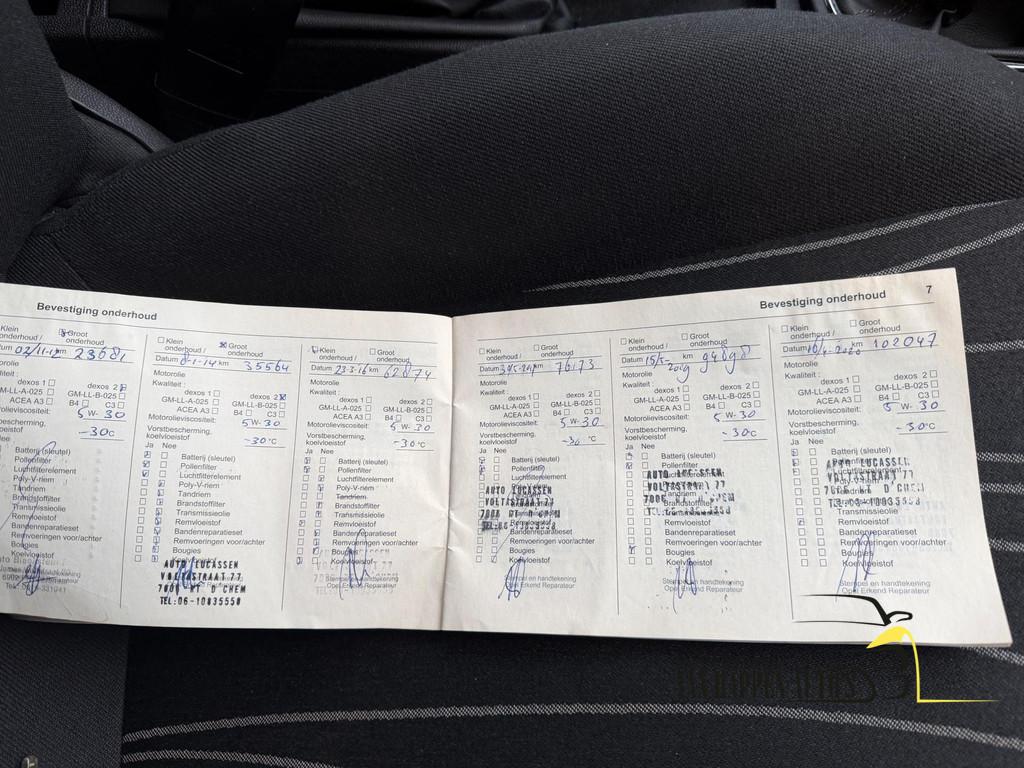 Bevestiging onderhoud
Klein onderhoud / Groot onderhoud
km 23681
Motorolie
Kwaliteit :
dexos 1 dexos 2
GM-LL-A-025 GM-LL-B-025
ACEA A3 B4 C3
Motorolieviscositeit:
5W-30
Vorstbescherming,
koelvloeistof
-30°C
Ja Nee
Batterij (sleutel)
Pollenfilter
Luchtfilterelement
Poly-V-riem
Tandriem
Brandstoffilter
Transmissieolie
Remvloeistof
Bandenreparatieset
Remvoeringen voor/achter
Bougies
Koelvloeistof
Klein onderhoud / Groot onderhoud
Datum 8-1-14 km 35564
Motorolie
Kwaliteit :
dexos 1 dexos 2
GM-LL-A-025 GM-LL-B-025
ACEA A3 B4 C3
Motorolieviscositeit:
5W-30
Vorstbescherming,
koelvloeistof
-30°C
Ja Nee
Batterij (sleutel)
Pollenfilter
Luchtfilterelement
Poly-V-riem
Tandriem
Brandstoffilter
Transmissieolie
Remvloeistof
Bandenreparatieset
Remvoeringen voor/achter
Bougies
Koelvloeistof
AUTO LUCASSEN
VOLTASTRAAT 77
D'CHEM
TEL:06-10035550
Klein onderhoud / Groot onderhoud
Datum 23-3-16 km 62874
Motorolie
Kwaliteit :
dexos 1 dexos 2
GM-LL-A-025 GM-LL-B-025
ACEA A3 B4 C3
Motorolieviscositeit:
5W-30
Vorstbescherming,
koelvloeistof
-30°C
Ja Nee
Batterij (sleutel)
Pollenfilter
Luchtfilterelement
Poly-V-riem
Tandriem
Brandstoffilter
Transmissieolie
Remvloeistof
Bandenreparatieset
Remvoeringen voor/achter
Bougies
Koelvloeistof
Stempel en handtekening
Bevestiging onderhoud 7
Klein onderhoud / Groot onderhoud
Datum km 76173
Motorolie
Kwaliteit :
dexos 1 dexos 2
GM-LL-A-025 GM-LL-B-025
ACEA A3 B4 C3
Motorolieviscositeit:
5W-30
Vorstbescherming,
koelvloeistof
°C
Ja Nee
Batterij (sleutel)
Pollenfilter
Luchtfilterelement
AUTO LUCASSEN
VOLTASTRAAT 77
D'CHEM
Remvloeistof
Bandenreparatieset
Remvoeringen voor/achter
Bougies
Koelvloeistof
Stempel en handtekening
Opel Erkend Reparateur
Klein onderhoud / Groot onderhoud
Datum 15/5-2019 km 94898
Motorolie
Kwaliteit :
dexos 1 dexos 2
GM-LL-A-025 GM-LL-B-025
ACEA A3 B4 C3
Motorolieviscositeit:
5W-30
Vorstbescherming,
koelvloeistof
-30°C
Ja Nee
Batterij (sleutel)
Pollenfilter
AUTO LUCASSEN
VOLTASTRAAT 77
D'CHEM
Transmissieolie
Remvloeistof
Bandenreparatieset
Remvoeringen voor/achter
Bougies
Koelvloeistof
Stempel en handtekening
Opel Erkend Reparateur
Klein onderhoud / Groot onderhoud
Datum km 102047
Motorolie
Kwaliteit :
dexos 1 dexos 2
GM-LL-A-025 GM-LL-B-025
ACEA A3 B4 C3
Motorolieviscositeit:
5W-30
Vorstbescherming,
koelvloeistof
-30°C
Ja Nee
Batterij (sleutel)
Pollenfilter
AUTO LUCASSEN
VOLTASTRAAT 77
D'CHEM
Transmissieolie
Remvloeistof
Bandenreparatieset
Remvoeringen voor/achter
Bougies
Koelvloeistof
Stempel en handtekening
Opel Erkend Reparateur